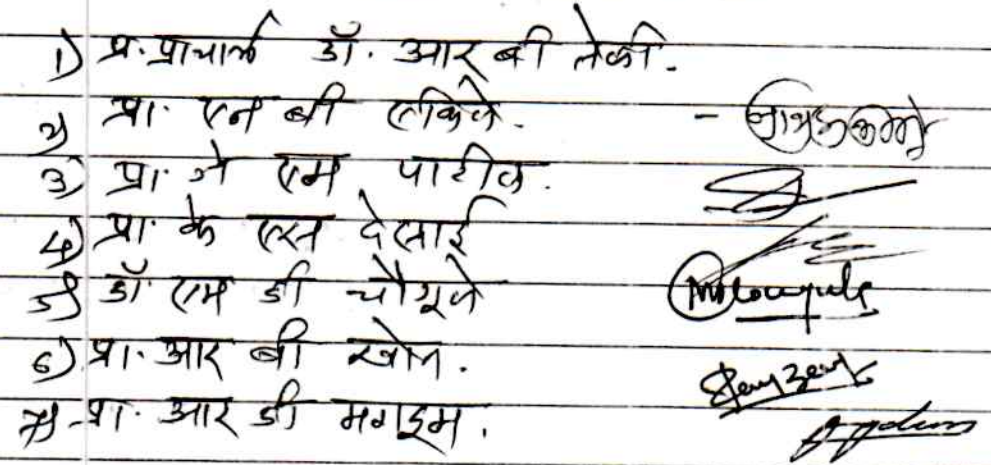 1) प्र. प्राचार्य डॉ. आर बी तेली.
2) प्रा. एन बी एकिले. -
3) प्रा. जे एम पाटील.
4) प्रा. के एस देसाई
5) डॉ. एम डी चौगुले
6) प्रा. आर बी खोत.
7) प्रा. आर डी मगदूम.